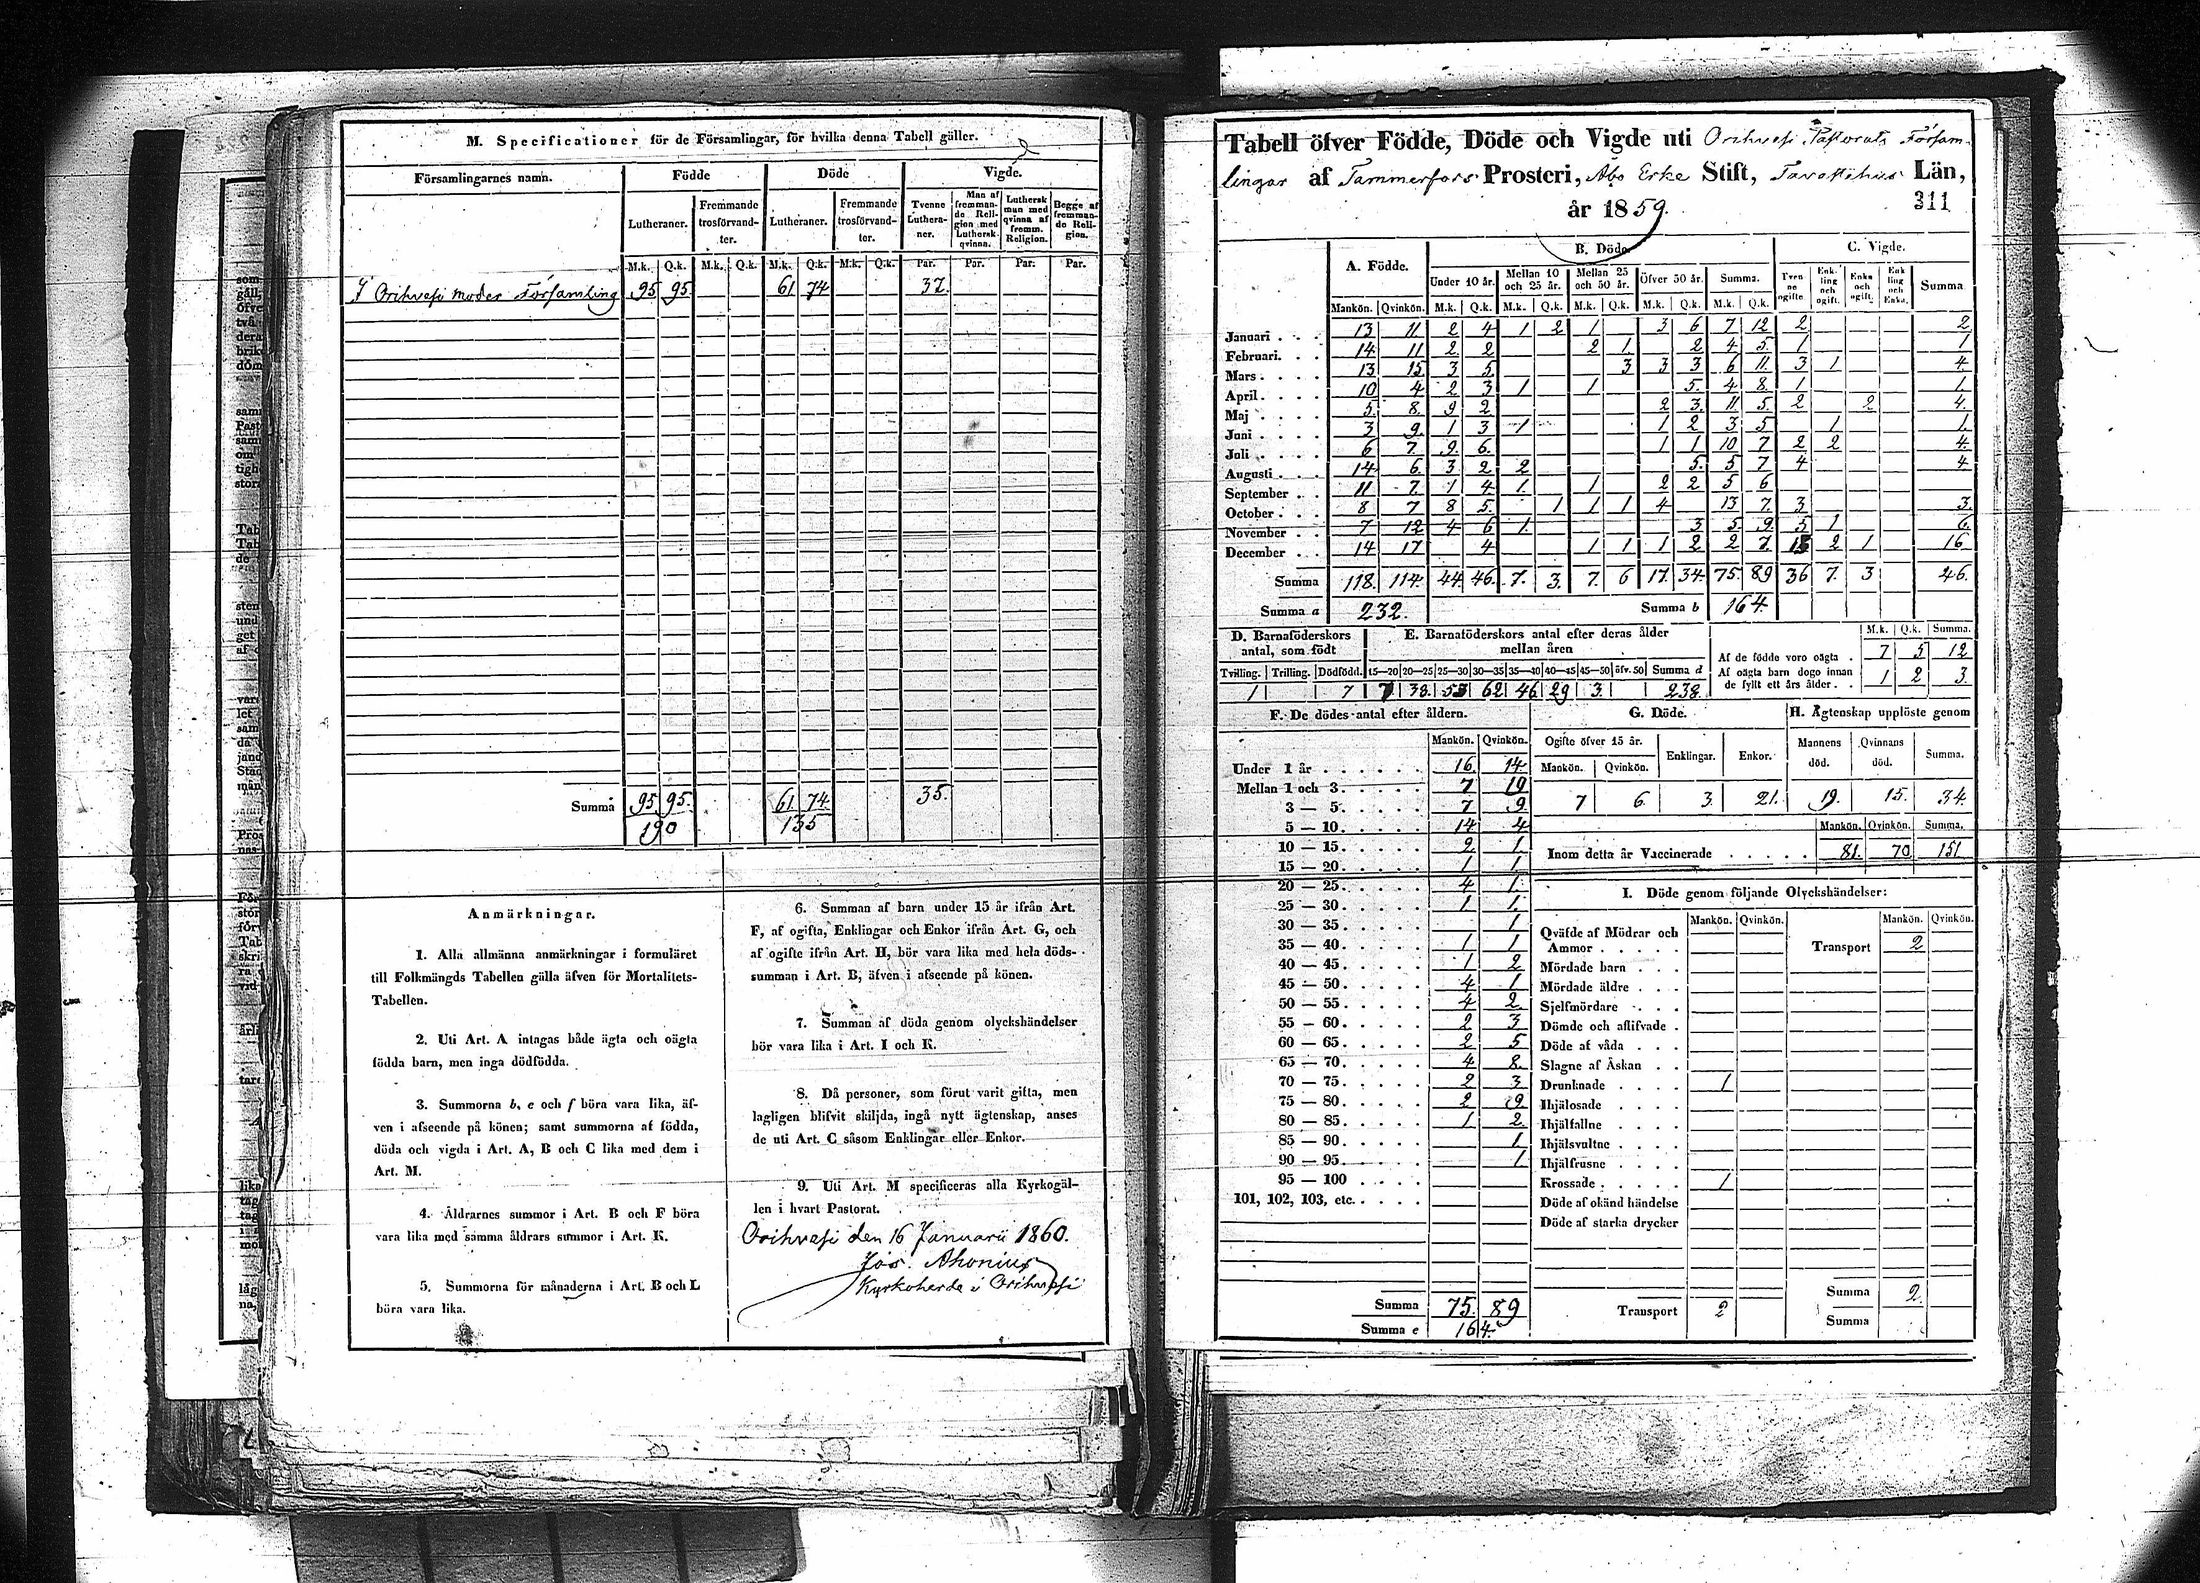 M. Specificationer för de Församlingar, för hvilka denna Tabell gäller.
Församlingarnes namn. Födde Döde Vigde.
Lutheraner. Fremmande trosförvandter. Lutheraner. Fremmande trosförvandter. Tvenne Lutheraner. Man af fremmande Religion med Luthersk qvinna. Luthersk man med qvinna af fremm. Religion. Begge af fremmande Religion.
M.k. Q.k. M.k. Q.k. M.k. Q.k. M.k. Q.k. Par. Par. Par. Par.
I Orihvesi moder Församling 95 95. 61 74 37.
Summa 95. 95. 61. 74. 35.
190 135
Anmärkningar.
1. Alla allmänna anmärkningar i formuläret
till Folkmängds Tabellen gälla äfven för Mortalitets-
Tabellen.
2. Uti Art. A intagas både ägta och oägta
födda barn, men inga dödfödda.
3. Summorna b, e och f böra vara lika, äf-
ven i afseende på könen; samt summorna af födda,
döda och vigda i Art. A, B och C lika med dem i
Art. M.
4. Åldrarnes summor i Art. B och F böra
vara lika med samma åldrars summor i Art. K.
5. Summorna för månaderna i Art. B och L
böra vara lika.
6. Summan af barn under 15 år ifrån Art.
F, af ogifta, Enklingar och Enkor ifrån Art. G, och
af ogifte ifrån Art. H, bör vara lika med hela döds-
summan i Art. B, äfven i afseende på könen.
7. Summan af döda genom olyckshändelser
bör vara lika i Art. I och K.
8. Då personer, som förut varit gifta, men
lagligen blifvit skiljda, ingå nytt ägtenskap, anses
de uti Art. C såsom Enklingar eller Enkor.
9. Uti Art. M specificeras alla Kyrkogäl-
len i hvart Pastorat.
Orihvesi den 16 Januarii 1860.
Jos. Ahonius
Kyrkoherde i Orihvesi
Tabell öfver Födde, Döde och Vigde uti Orihvesi Pastorats Församlingar
af Tammerfors Prosteri, Åbo Erke Stift, Tavastehus Län,
år 1859.
311
A. Födde. B. Döde C. Vigde.
Under 10 år. Mellan 10 och 25 år. Mellan 25 och 50 år. Öfver 50 år. Summa. Tvenne ogifte Enkling och ogift. Enka och ogift. Enkling och Enka. Summa
Mankön. Qvinkön. M.k. Q.k. M.k. Q.k. M.k. Q.k. M.k. Q.k. M.k. Q.k.
Januari . . . 13 11 2 4 1 2 1 3 6 7 12 2 2
Februari. . . 14 11 2 2 2 1 2 4 5. 1 1
Mars . . . . 13 15 3 5 3 3 3 6 11. 3 1 4.
April. . . . 10 4 2 3 1 1 5. 4 8. 1 1.
Maj . . . . 5. 8. 9 2 2 3. 11 5. 2 2 4.
Juni . . . . 3 9. 1 3 1 1 2 3 5 1 1.
Juli . . . . 6 7. 9. 6. 1 1 10 7 2 2 4.
Augusti . . . 14 6. 3 2 2 5. 5 7 4 4
September . . 11 7. 1 4 1. 1 2 2 5 6
October . . . 8 7 8 5. 1 1 1 4 13 7. 3 3.
November . . 7 12 4 6 1 3 5. 9. 5 1 6.
December . . 14 17 4 1 1 1 2 2 7. 13 2 1 16
Summa 118. 114. 44. 46. 7. 3. 7. 6 17. 34. 75. 89 36 7. 3 46.
Summa a 232. Summa b 164.
D. Barnaföderskors antal, som födt
Tvilling. Trilling. Dödfödd.
1 7
E. Barnaföderskors antal efter deras ålder mellan åren
15—20 20—25 25—30 30—35 35—40 40—45 45—50 öfv. 50 Summa d
7 38. 53 62 46 29 3. 238.
M.k. Q.k. Summa.
Af de födde voro oägta . 7 5 12
Af oägta barn dogo innan de fyllt ett års ålder. . 1 2 3.
F. De dödes antal efter åldern.
Mankön. Qvinkön.
Under 1 år . . . . . . 16 14
Mellan 1 och 3 . . . . . 7 19
3 — 5. . . . . 7 9
5 — 10. . . . . 14 4
10 — 15. . . . . 2 1.
15 — 20. . . . . 1 1
20 — 25. . . . . 4 1.
25 — 30. . . . . 1 1.
30 — 35. . . . . 1
35 — 40. . . . . 1 1
40 — 45. . . . . 1 2
45 — 50. . . . . 4 1
50 — 55. . . . . 4 2
55 — 60. . . . . 2 3
60 — 65. . . . . 2 5
65 — 70. . . . . 4 8.
70 — 75. . . . . 2 3
75 — 80. . . . . 2 9
80 — 85. . . . . 1 2
85 — 90. . . . . 1
90 — 95. . . . . 1.
95 — 100 . . . .
101, 102, 103, etc. . . . .
Summa 75. 89
Summa e 164.
G. Döde.
Ogifte öfver 15 år. Enklingar. Enkor.
Mankön. Qvinkön.
7 6. 3. 21.
H. Ägtenskap upplöste genom
Mannens död. Qvinnans död. Summa.
19. 15. 34.
Mankön. Qvinkön. Summa.
Inom detta år Vaccinerade . . . . . 81. 70 151
I. Döde genom följande Olyckshändelser:
Mankön. Qvinkön. Mankön. Qvinkön.
Qväfde af Mödrar och Ammor . . . . . Transport 2
Mördade barn . . .
Mördade äldre . . .
Sjelfmördare . . .
Dömde och aflifvade .
Döde af våda . . .
Slagne af Åskan . .
Drunknade . . . . 1
Ihjälosade . . . .
Ihjälfallne . . . .
Ihjälsvultne . . . .
Ihjälfrusne . . . .
Krossade . . . . . 1
Döde af okänd händelse
Döde af starka drycker
Summa 2.
Transport 2 Summa